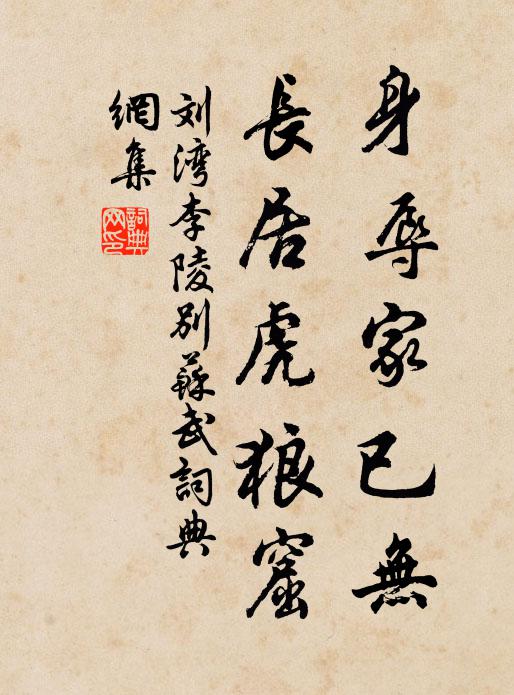 身辱家已無
長居虎狼窟
刘湾李陵别蘇武詞典
網集
詞典
网印